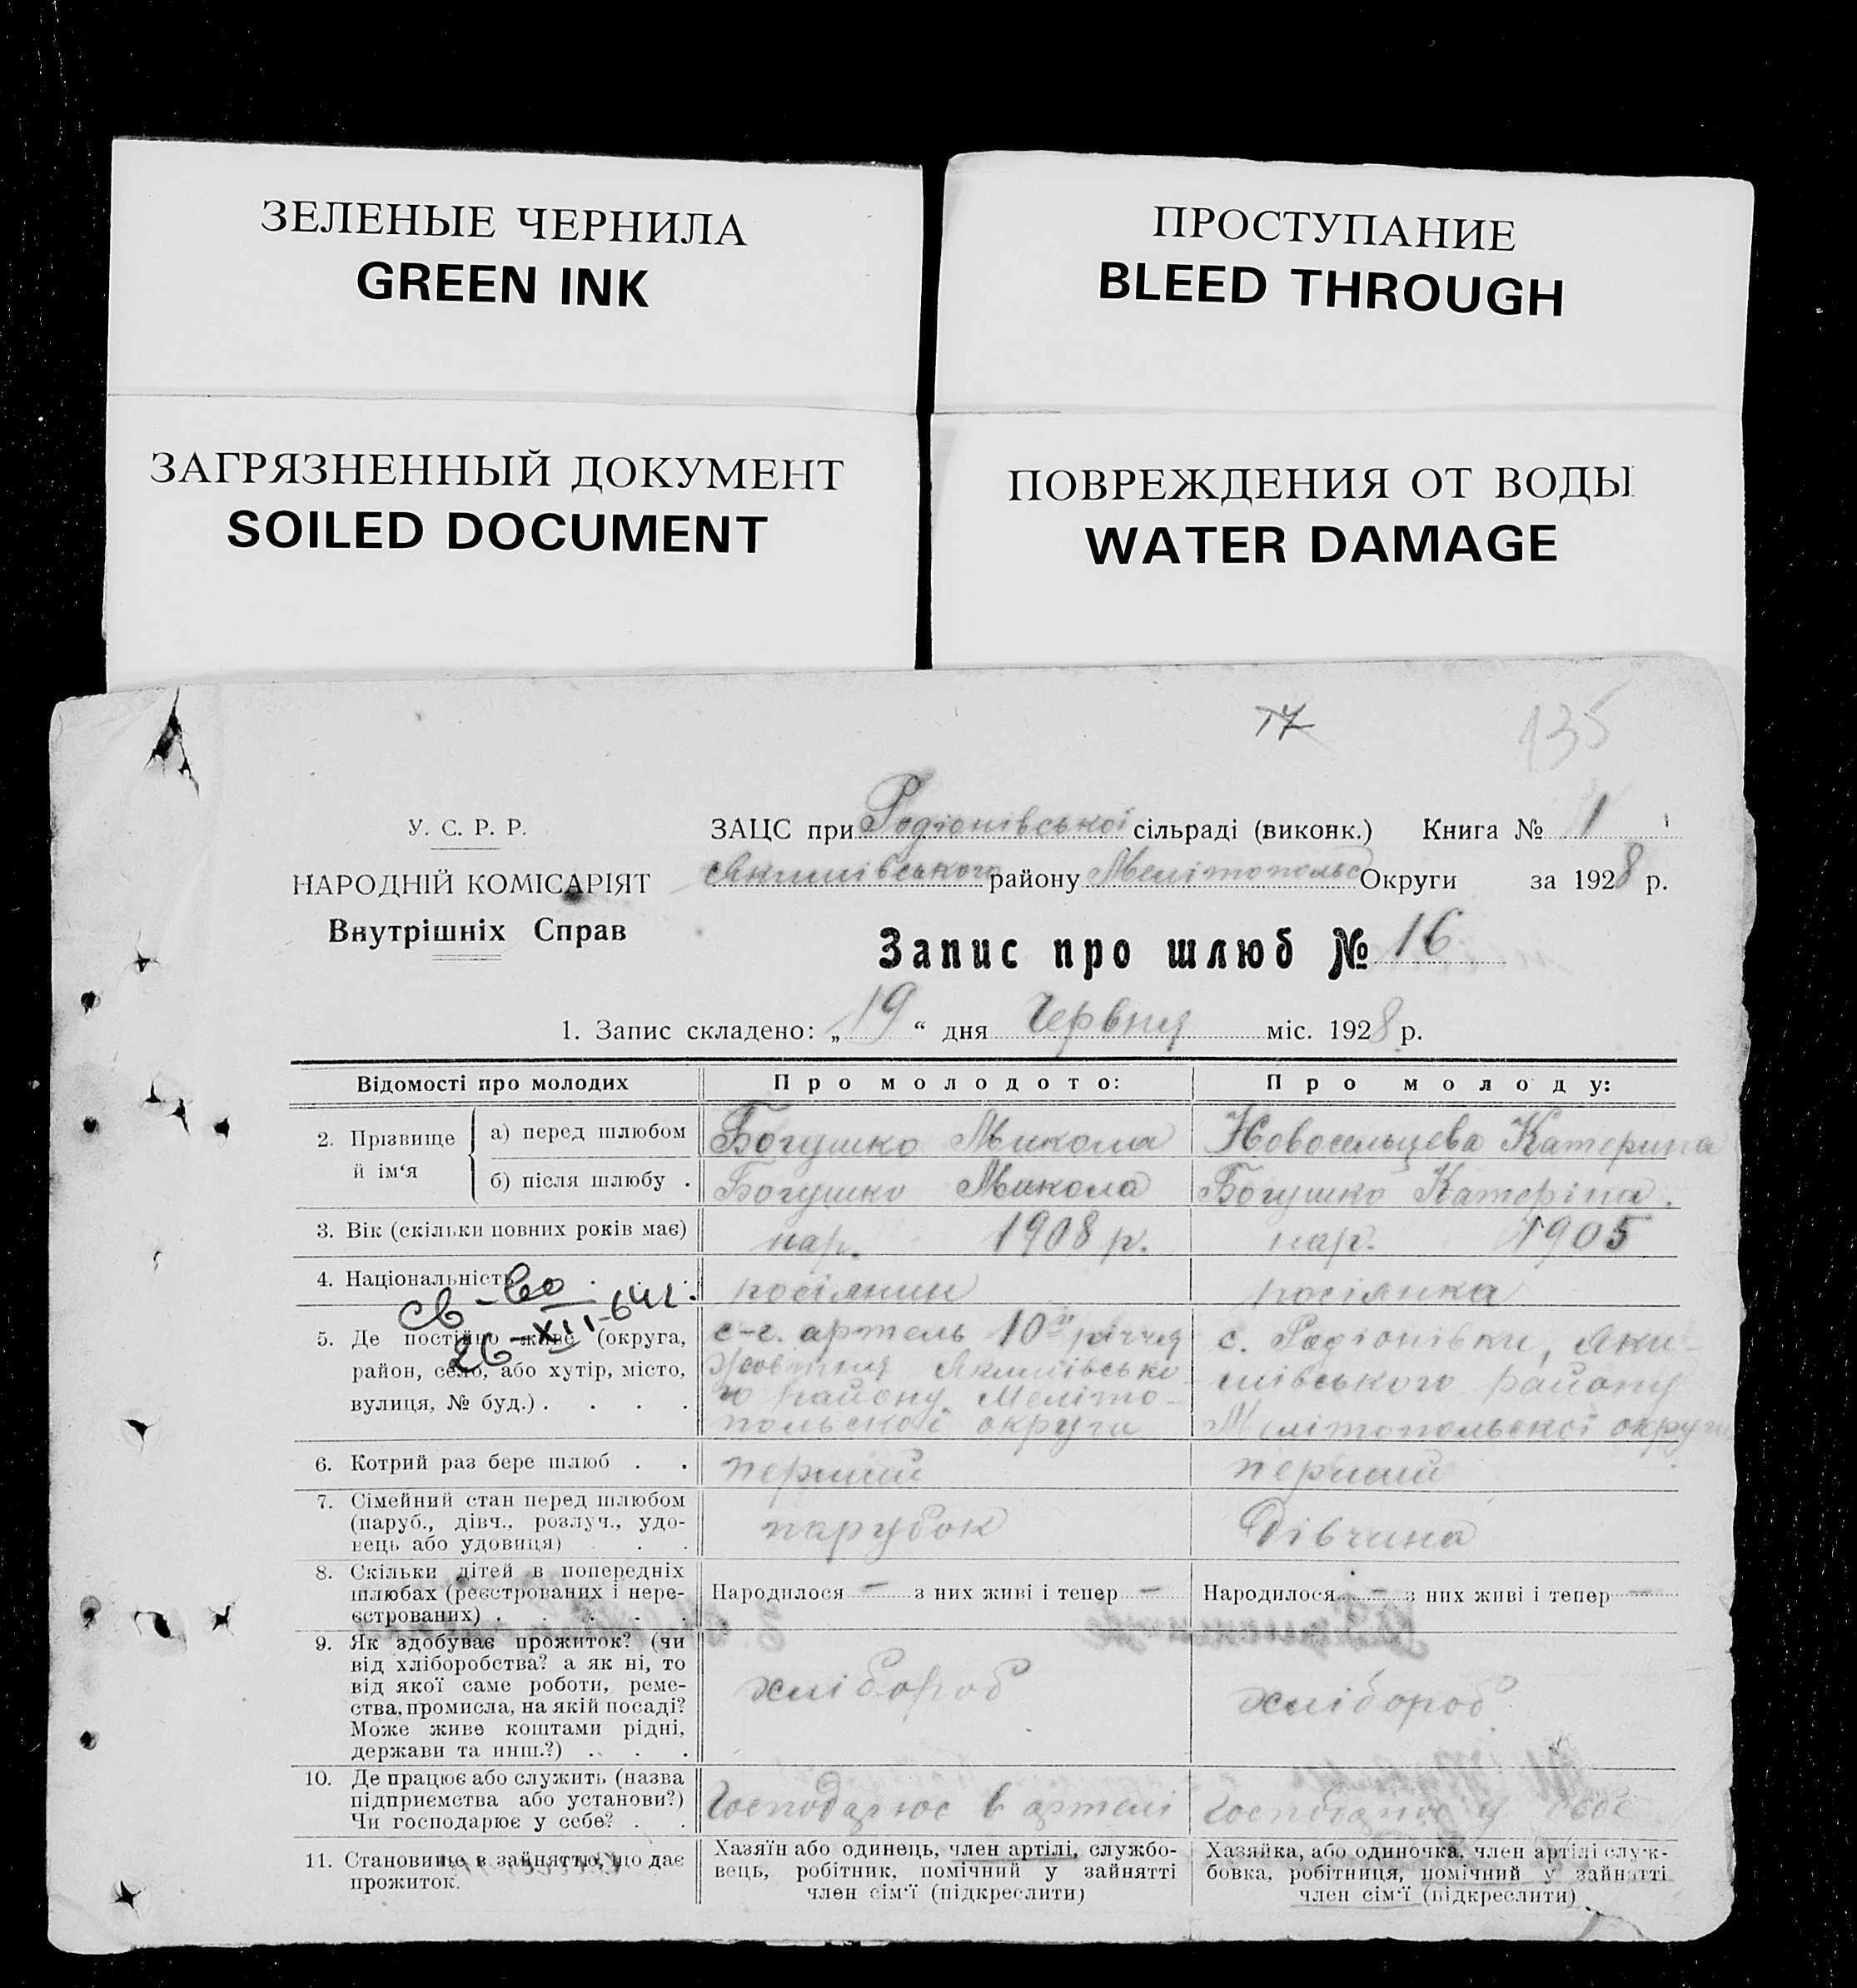 ЗЕЛЕНЫЕ ЧЕРНИЛА
GREEN INK
ПРОСТУПАНИЕ
BLEED THROUGH
ЗАГРЯЗНЕННЫЙ ДОКУМЕНТ
SOILED DOCUMENT
ПОВРЕЖДЕНИЯ ОТ ВОДЫ
WATER DAMAGE
17
135
У. С. Р. Р.
НАРОДНІЙ КОМІСАРІЯТ
Внутрішніх Справ
ЗАЦС при Родіонівської сільраді (виконк.) Книга № 1
Якимівського району Мелітопольс Округи за 1928 р.
Запис про шлюб № 16
1. Запис складено: „19“ дня Червня міс. 1928 р.
Відомості про молодих
Про молодого:
Про молоду:
2. Прізвище й ім‘я
а) перед шлюбом
Богушко Микола
Новосельцева Катерина
б) після шлюбу .
Богушко Микола
Богушко Катеріна.
3. Вік (скільки повних років має)
нар. 1908 р.
нар. 1905
4. Національність . . .
росіянин
росіянка
св-во
26-XII-64г.
5. Де постійно живе (округа,
район, село, або хутір, місто,
вулиця, № буд.) . . . .
с-г. артель 10ⁿ річчя
Жовтня Якимівсько
го району. Меліто-
польської округи
с. Родіонівки, Яки-
мівського району
Мелітопольскої округи
6. Котрий раз бере шлюб . .
перший
перший
7. Сімейний стан перед шлюбом
(паруб., дівч., розлуч., удо-
вець або удовиця) . . .
парубок
Дівчина
8. Скільки дітей в попередніх
шлюбах (реєстрованих і нере-
єстрованих) . . . . .
Народилося — з них живі і тепер —
Народилося — з них живі і тепер —
9. Як здобуває прожиток? (чи
від хліборобства? а як ні, то
від якої саме роботи, реме-
ства, промисла, на якій посаді?
Може живе коштами рідні,
держави та инш.?) . . .
хлібороб
хлібороб
10. Де працює або служить (назва
підприємства або установи?)
Чи господарює у себе? . .
Господарює в артелі
Господарює у себе
11. Становище в зайняттю, що дає
прожиток.
Хазяїн або одинець, член артілі, службо-
вець, робітник, помічний у зайнятті
член сім‘ї (підкреслити)
Хазяйка, або одиночка, член артілі служ-
бовка, робітниця, помічний у зайнятті
член сім‘ї (підкреслити)